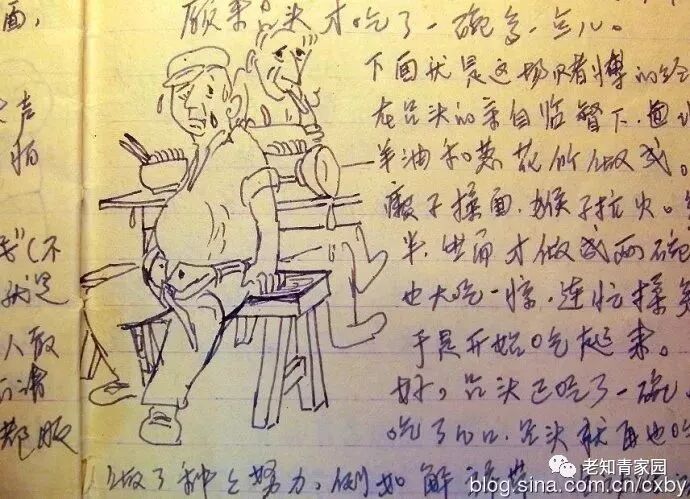 面,
顾来品头才吃了一碗多一点儿。
下面就是这场赌博的经
声
在品头的亲自监督下,面
怕
羊油和葱花所做成。
瘢子揉面,猴子拉火。
(不
半,
才做成两碗
就是
也大吃一惊,连忙揉
人散
于是开始吃起来。
请
好,品头已吃了一碗,
都服
吃了几口,品头就再也吃
做了种之努力,例如解
老知青家园
blog.sina.com.cn/cxby